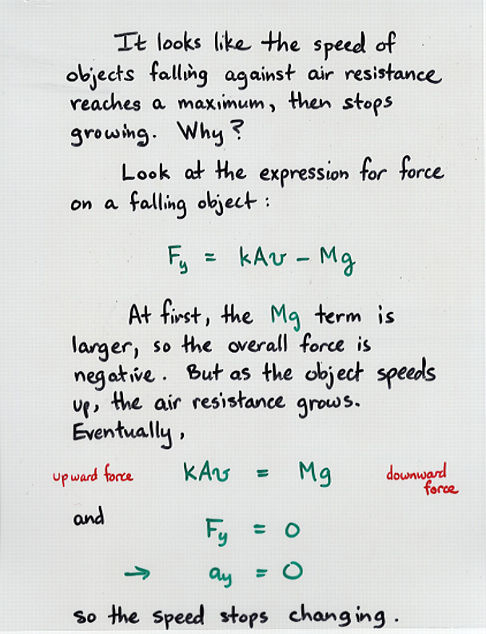 It looks like the speed of
objects falling against air resistance
reaches a maximum, then stops
growing. Why?
Look at the expression for force
on a falling object:
Fy = kAv - Mg
At first, the Mg term is
larger, so the overall force is
negative. But as the object speeds
up, the air resistance grows.
Eventually,
upward force kAv = Mg downward force
and
Fy = 0
→ ay = 0
so the speed stops changing.